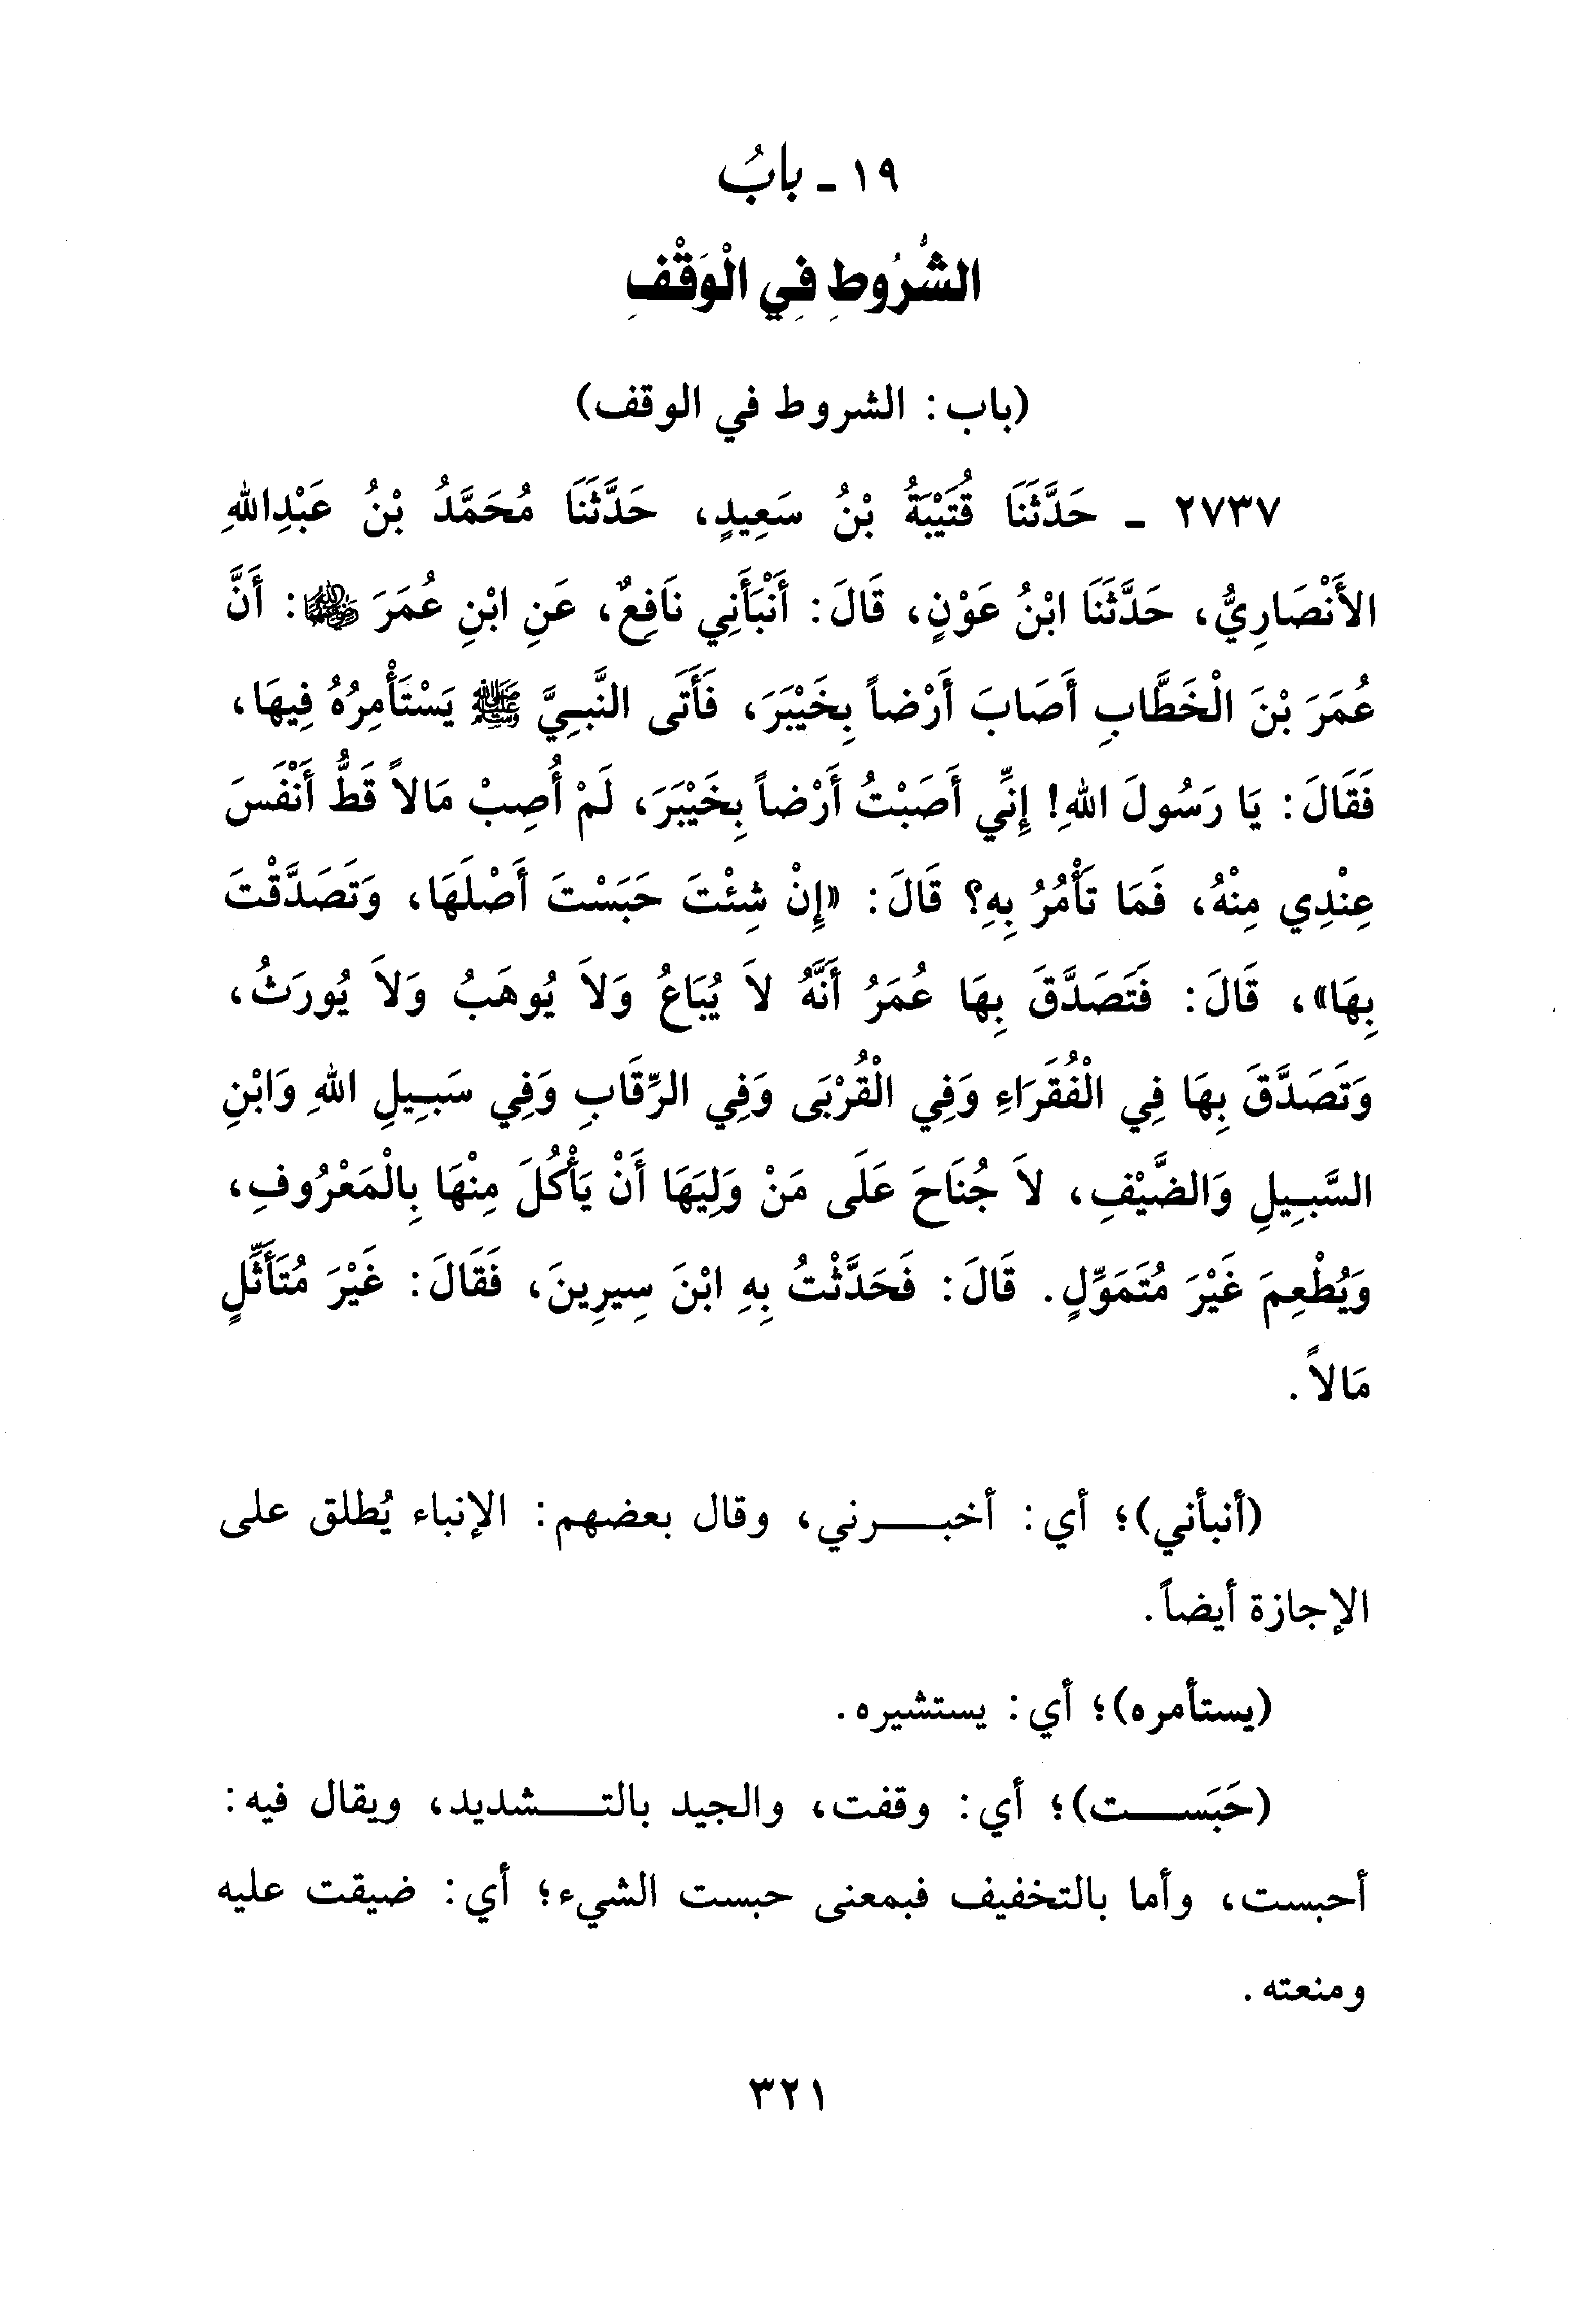 ١٩ - بابُ
الشُّرُوطِ فِي الْوَقْفِ
(باب: الشروط في الوقف)
٢٧٣٧ - حَدَّثَنَا قُتَيْبَةُ بْنُ سَعِيدٍ، حَدَّثَنَا مُحَمَّدُ بْنُ عَبْدِاللهِ
الأَنْصَارِيُّ، حَدَّثَنَا ابْنُ عَوْنٍ، قَالَ: أَنْبَأَنِي نَافِعٌ، عَنِ ابْنِ عُمَرَ ﵄: أَنَّ
عُمَرَ بْنَ الْخَطَّابِ أَصَابَ أَرْضاً بِخَيْبَرَ، فَأَتَى النَّبِيَّ ﷺ يَسْتَأْمِرُهُ فِيهَا،
فَقَالَ: يَا رَسُولَ اللهِ! إِنِّي أَصَبْتُ أَرْضاً بِخَيْبَرَ، لَمْ أُصِبْ مَالاً قَطُّ أَنْفَسَ
عِنْدِي مِنْهُ، فَمَا تَأْمُرُ بِهِ؟ قَالَ: «إِنْ شِئْتَ حَبَسْتَ أَصْلَهَا، وَتَصَدَّقْتَ
بِهَا»، قَالَ: فَتَصَدَّقَ بِهَا عُمَرُ أَنَّهُ لاَ يُبَاعُ وَلاَ يُوهَبُ وَلاَ يُورَثُ،
وَتَصَدَّقَ بِهَا فِي الْفُقَرَاءِ وَفِي الْقُرْبَى وَفِي الرِّقَابِ وَفِي سَبِيلِ اللهِ وَابْنِ
السَّبِيلِ وَالضَّيْفِ، لاَ جُنَاحَ عَلَى مَنْ وَلِيَهَا أَنْ يَأْكُلَ مِنْهَا بِالْمَعْرُوفِ،
وَيُطْعِمَ غَيْرَ مُتَمَوِّلٍ. قَالَ: فَحَدَّثْتُ بِهِ ابْنَ سِيرِينَ، فَقَالَ: غَيْرَ مُتَأَثِّلٍ
مَالاً.
(أنبأني)؛ أي: أخبـــرني، وقال بعضهم: الإنباء يُطلق على
الإجازة أيضاً.
(يستأمره)؛ أي: يستشيره.
(حَبَســـت)؛ أي: وقفت، والجيد بالتـــشديد، ويقال فيه:
أحبست، وأما بالتخفيف فبمعنى حبست الشيء؛ أي: ضيقت عليه
ومنعته.
٣٢١